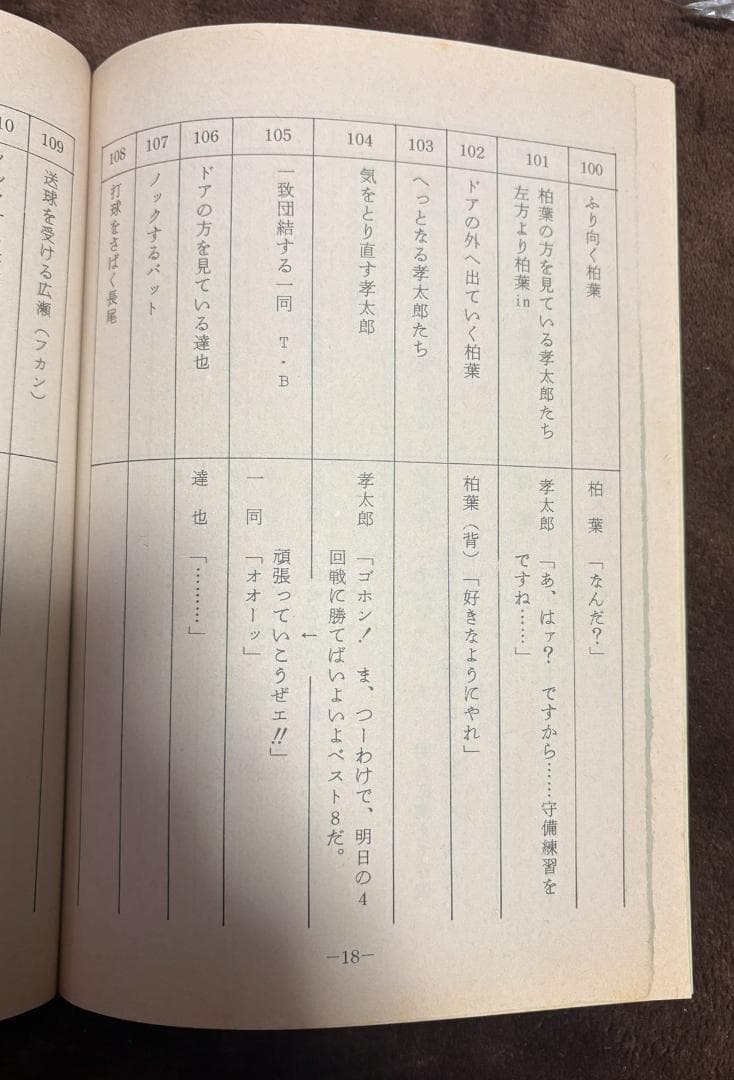 100
ふり向く柏葉
柏　葉　「なんだ？」
101
柏葉の方を見ている孝太郎たち
左方より柏葉in
孝太郎　「あ、はァ？　ですから……守備練習を
ですね……」
102
ドアの外へ出ていく柏葉
柏葉（背）「好きなようにやれ」
103
へっとなる孝太郎たち
104
気をとり直す孝太郎
孝太郎　「ゴホン！　ま、つーわけで、明日の4
回戦に勝てばいよいよベスト8だ。
←
105
一致団結する一同　T・B
頑張っていこうぜェ!!」
一　同　「オオーッ」
106
ドアの方を見ている達也
達　也　「………」
107
ノックするバット
108
打球をさばく長尾
109
送球を受ける広瀬（フカン）
－18－